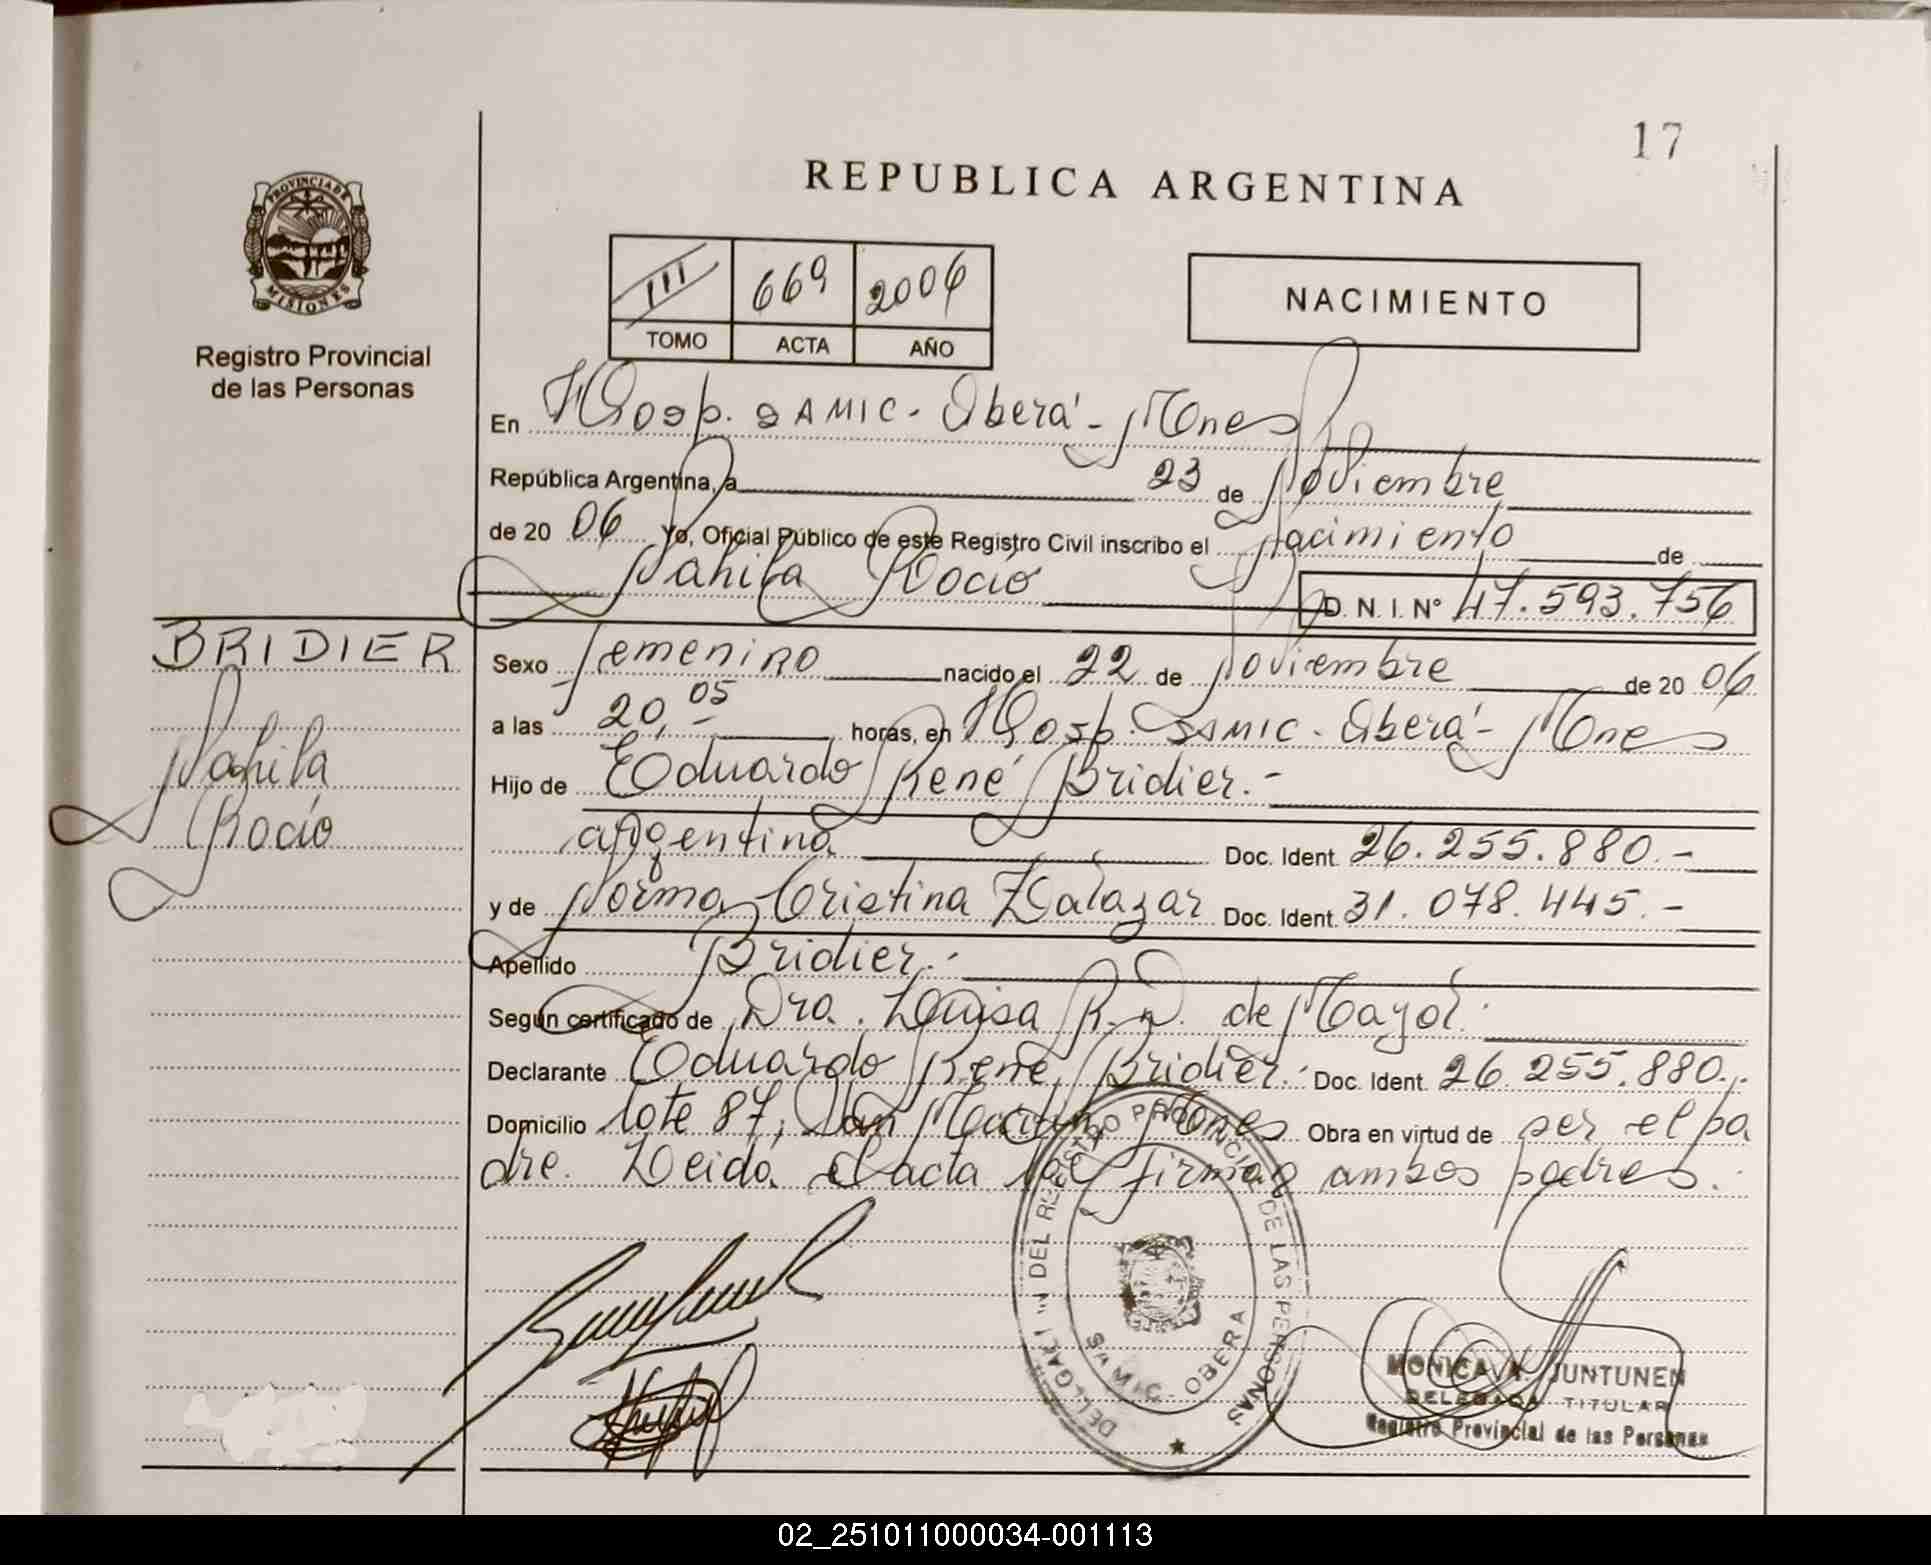 17
REPUBLICA ARGENTINA
PROVINCIA DE
MISIONES
Registro Provincial
de las Personas
III 669 2006
TOMO ACTA AÑO
NACIMIENTO
En Hosp. SAMIC - Oberá - Mnes
República Argentina, a 23 de Noviembre
de 2006 Yo, Oficial Público de este Registro Civil inscribo el Nacimiento de
Nahila Rocío
D. N. I. N° 47.593.756
BRIDIER
Nahila
Rocío
Sexo femenino nacido el 22 de Noviembre de 2006
a las 20,05 horas, en Hosp. SAMIC - Oberá - Mnes
Hijo de Eduardo René Bridier.-
argentina Doc. Ident. 26.255.880.-
y de Norma Cristina Zalazar Doc. Ident. 31.078.445.-
Apellido Bridier.-
Según certificado de Dra. Luisa R. de Mayol.
Declarante Eduardo René Bridier. Doc. Ident. 26.255.880.-
Domicilio lote 87, San Martín Mnes Obra en virtud de ser el pa
dre. Leída el acta la firman ambos padres.
DEL REGISTRO PROVINCIAL DE LAS PERSONAS
OBERA
MONICA V. JUNTUNEN
DELEGADA TITULAR
Registro Provincial de las Personas
02_251011000034-001113